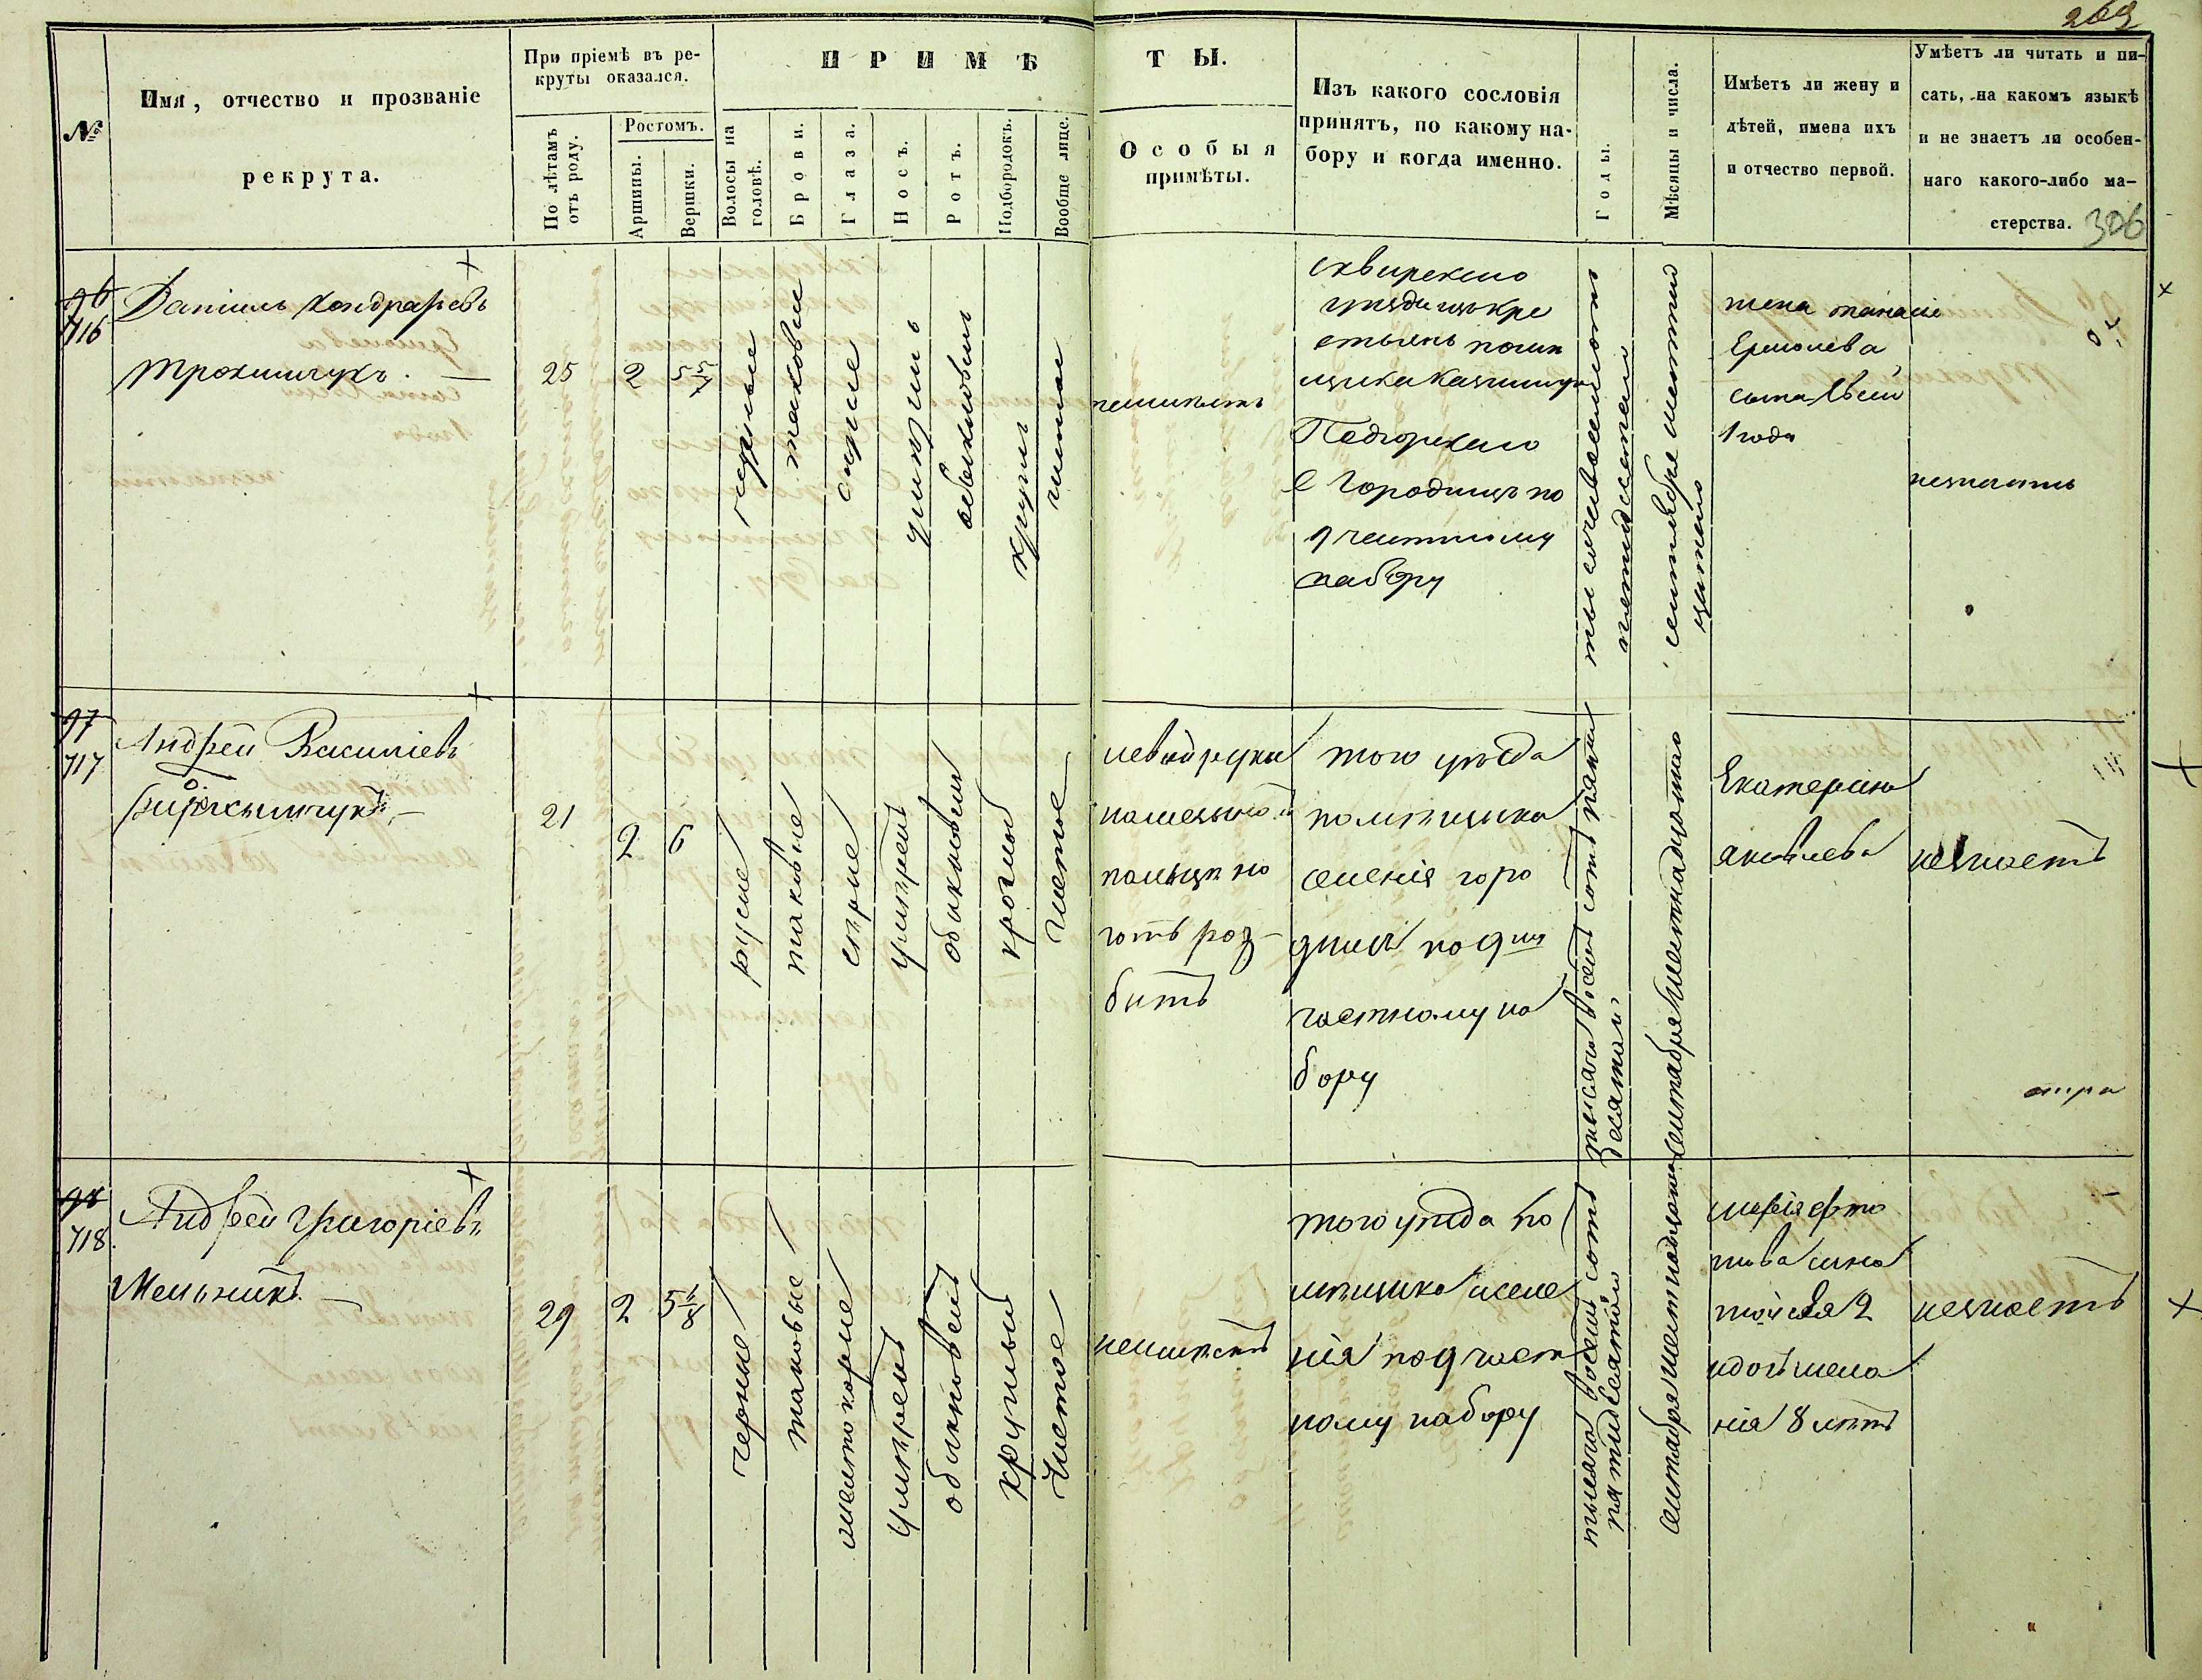 269
№
Имя, отчество и прозваніе
рекрута.
При пріемѣ въ ре-
круты оказался.
По лѣтамъ
отъ роду.
Ростомъ.
Аршины.
Вершки.
ПРИМѢ
ТЫ.
Волосы на
головѣ.
Брови.
Глаза.
Носъ.
Ротъ.
Подбородокъ.
Вообще лице.
Особыя
примѣты.
Изъ какого сословія
принятъ, по какому на-
бору и когда именно.
Годы.
Мѣсяцы и числа.
Имѣетъ ли жену и
дѣтей, имена ихъ
и отчество первой.
Умѣетъ ли читать и пи-
сать, на какомъ языкѣ
и не знаетъ ли особен-
наго какого-либо ма-
стерства.
306
96
716
Даніилъ Кондратьевъ
Трохимчукъ.
25
2
черные
таковые
серые
круглый
чистое
неимѣетъ
сквирскаго
уезда изъ кре
стьянъ помѣ
щика
Подгорскаго
с Городища по
9 частному
набору
жена
Ермолева
сына
1 года
незнаетъ
97
717
Андрей Василіевъ
21
2
6
русые
таковые
серые
умерен
обыкновен
круглый
чистое
левой руки
палецъ но
готь роз-
битъ
того уезда
помѣщика
селенія горо
дища по 9му
частному на
бору
тысяча восемь сотъ пять
десятый
сентября шестнадцатаго
Екатерина
Яковлева
незнаетъ
98
718
Андрей Григоріевъ
Мельникъ
29
2
5 1/8
черные
таковые
умерен
обыкновен
круглый
чистое
неимѣетъ
того уезда по
мѣщика и селе
нія по 9 част
ному набору
тысяча восемь сотъ
пятидесятый
сентября шестнадцатаго
марія
сына
2
и дочь мела
нія 8 летъ
незнаетъ